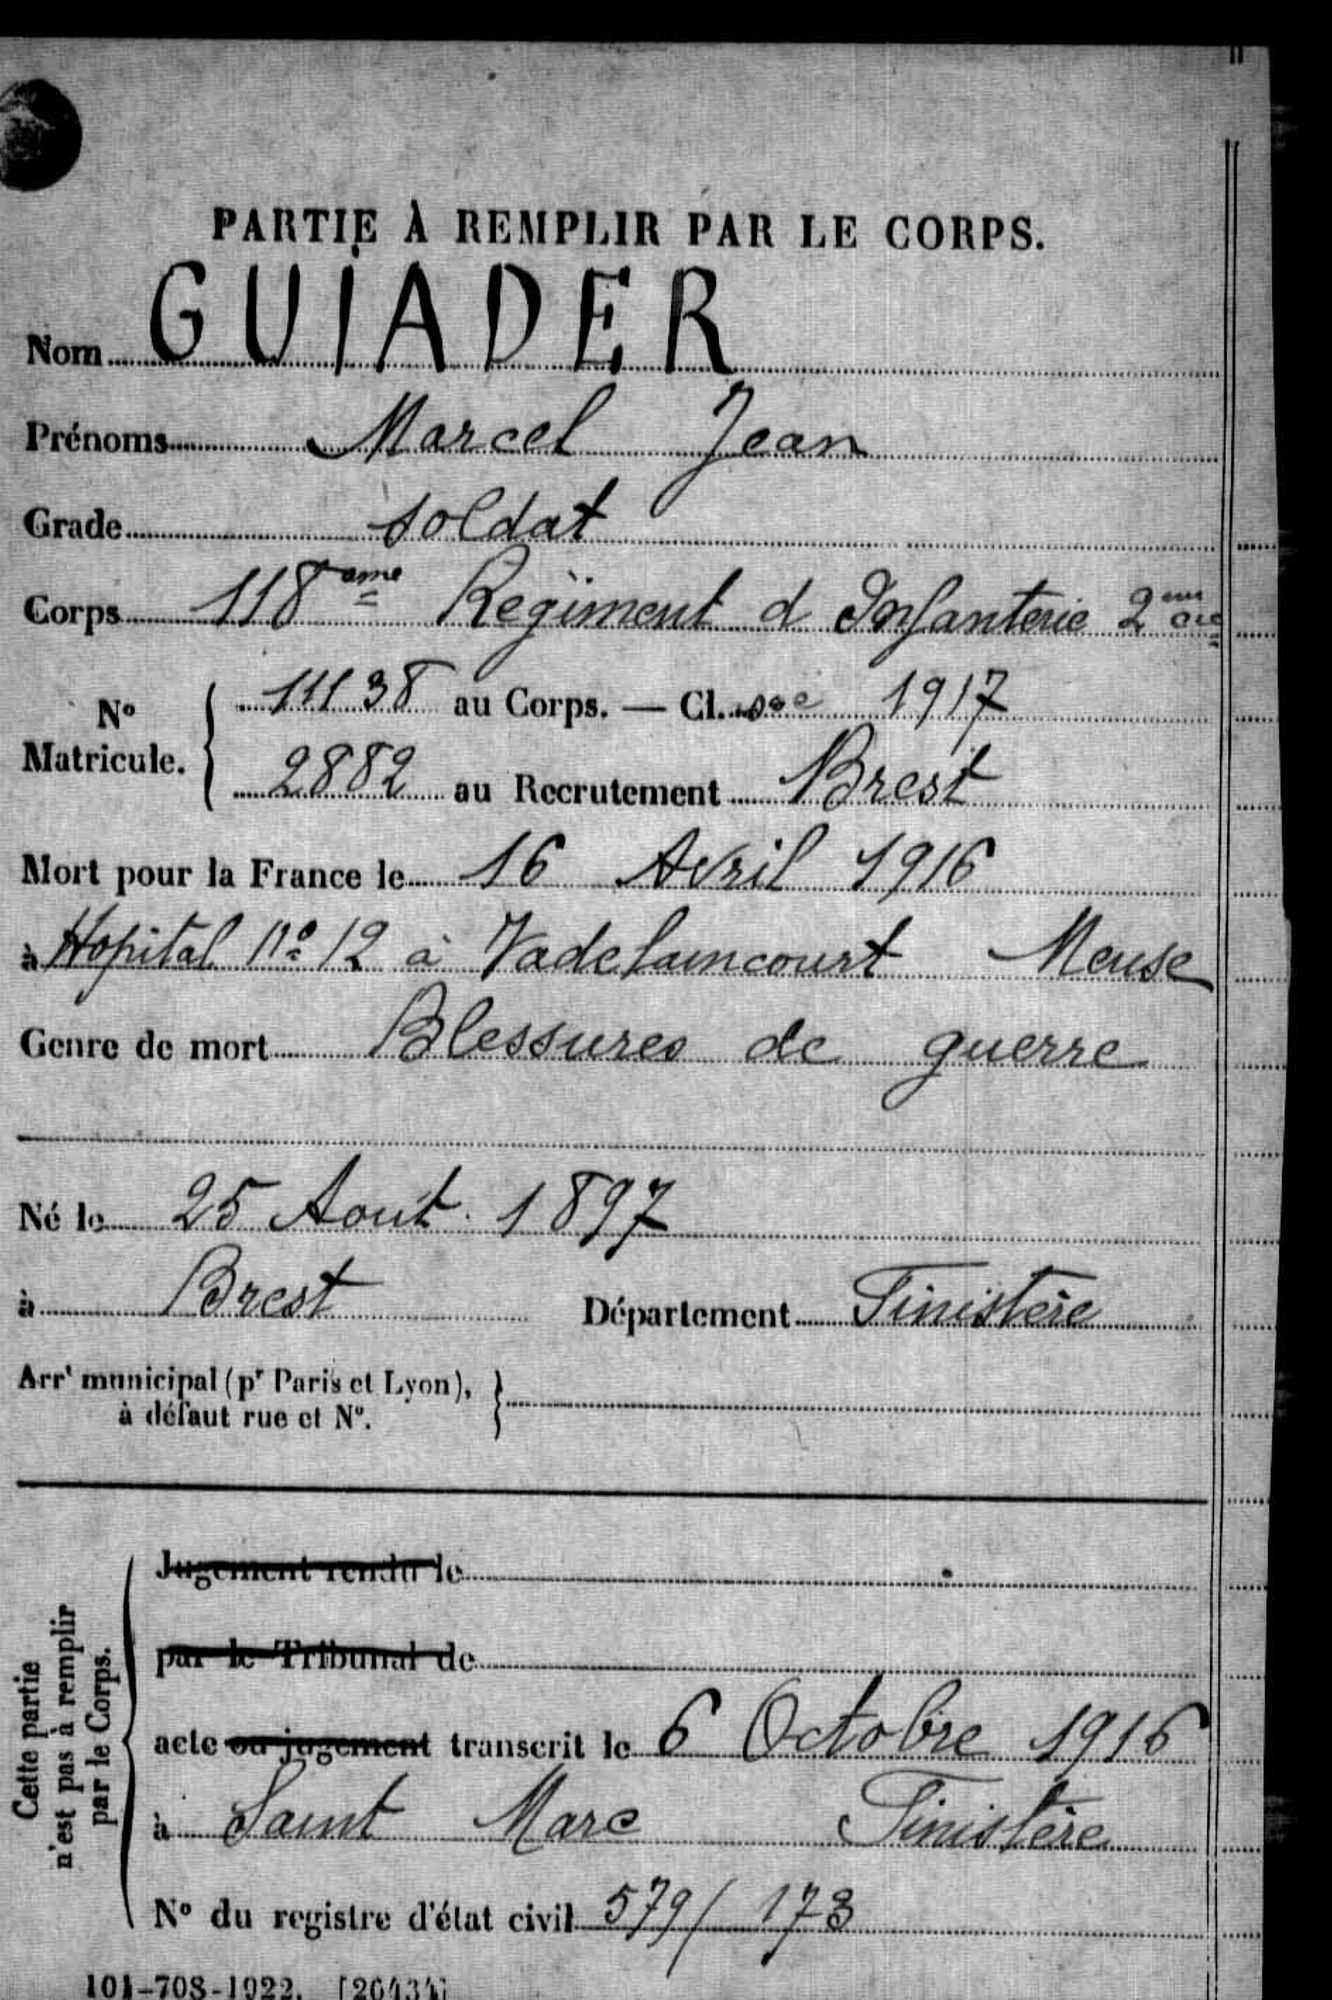 PARTIE À REMPLIR PAR LE CORPS.
Nom GUIADER
Prénoms Marcel Jean
Grade soldat
Corps 118ème Regiment d Infanterie 2eme Cie
N° Matricule. 11138 au Corps. — Cl.asse 1917
2882 au Recrutement Brest
Mort pour la France le 16 Avril 1916
à Hopital N° 12 à Vadelaincourt Meuse
Genre de mort Blessures de guerre
Né le 25 Août 1897
à Brest Département Finistère
Arrt municipal (pr Paris et Lyon),
à défaut rue et N°.
Cette partie
n'est pas à remplir
par le Corps.
Jugement rendu le
par le Tribunal de
acte ou jugement transcrit le 6 Octobre 1916
à Saint Marc Finistère
N° du registre d'état civil 579/173
101-708-1922. [26434]